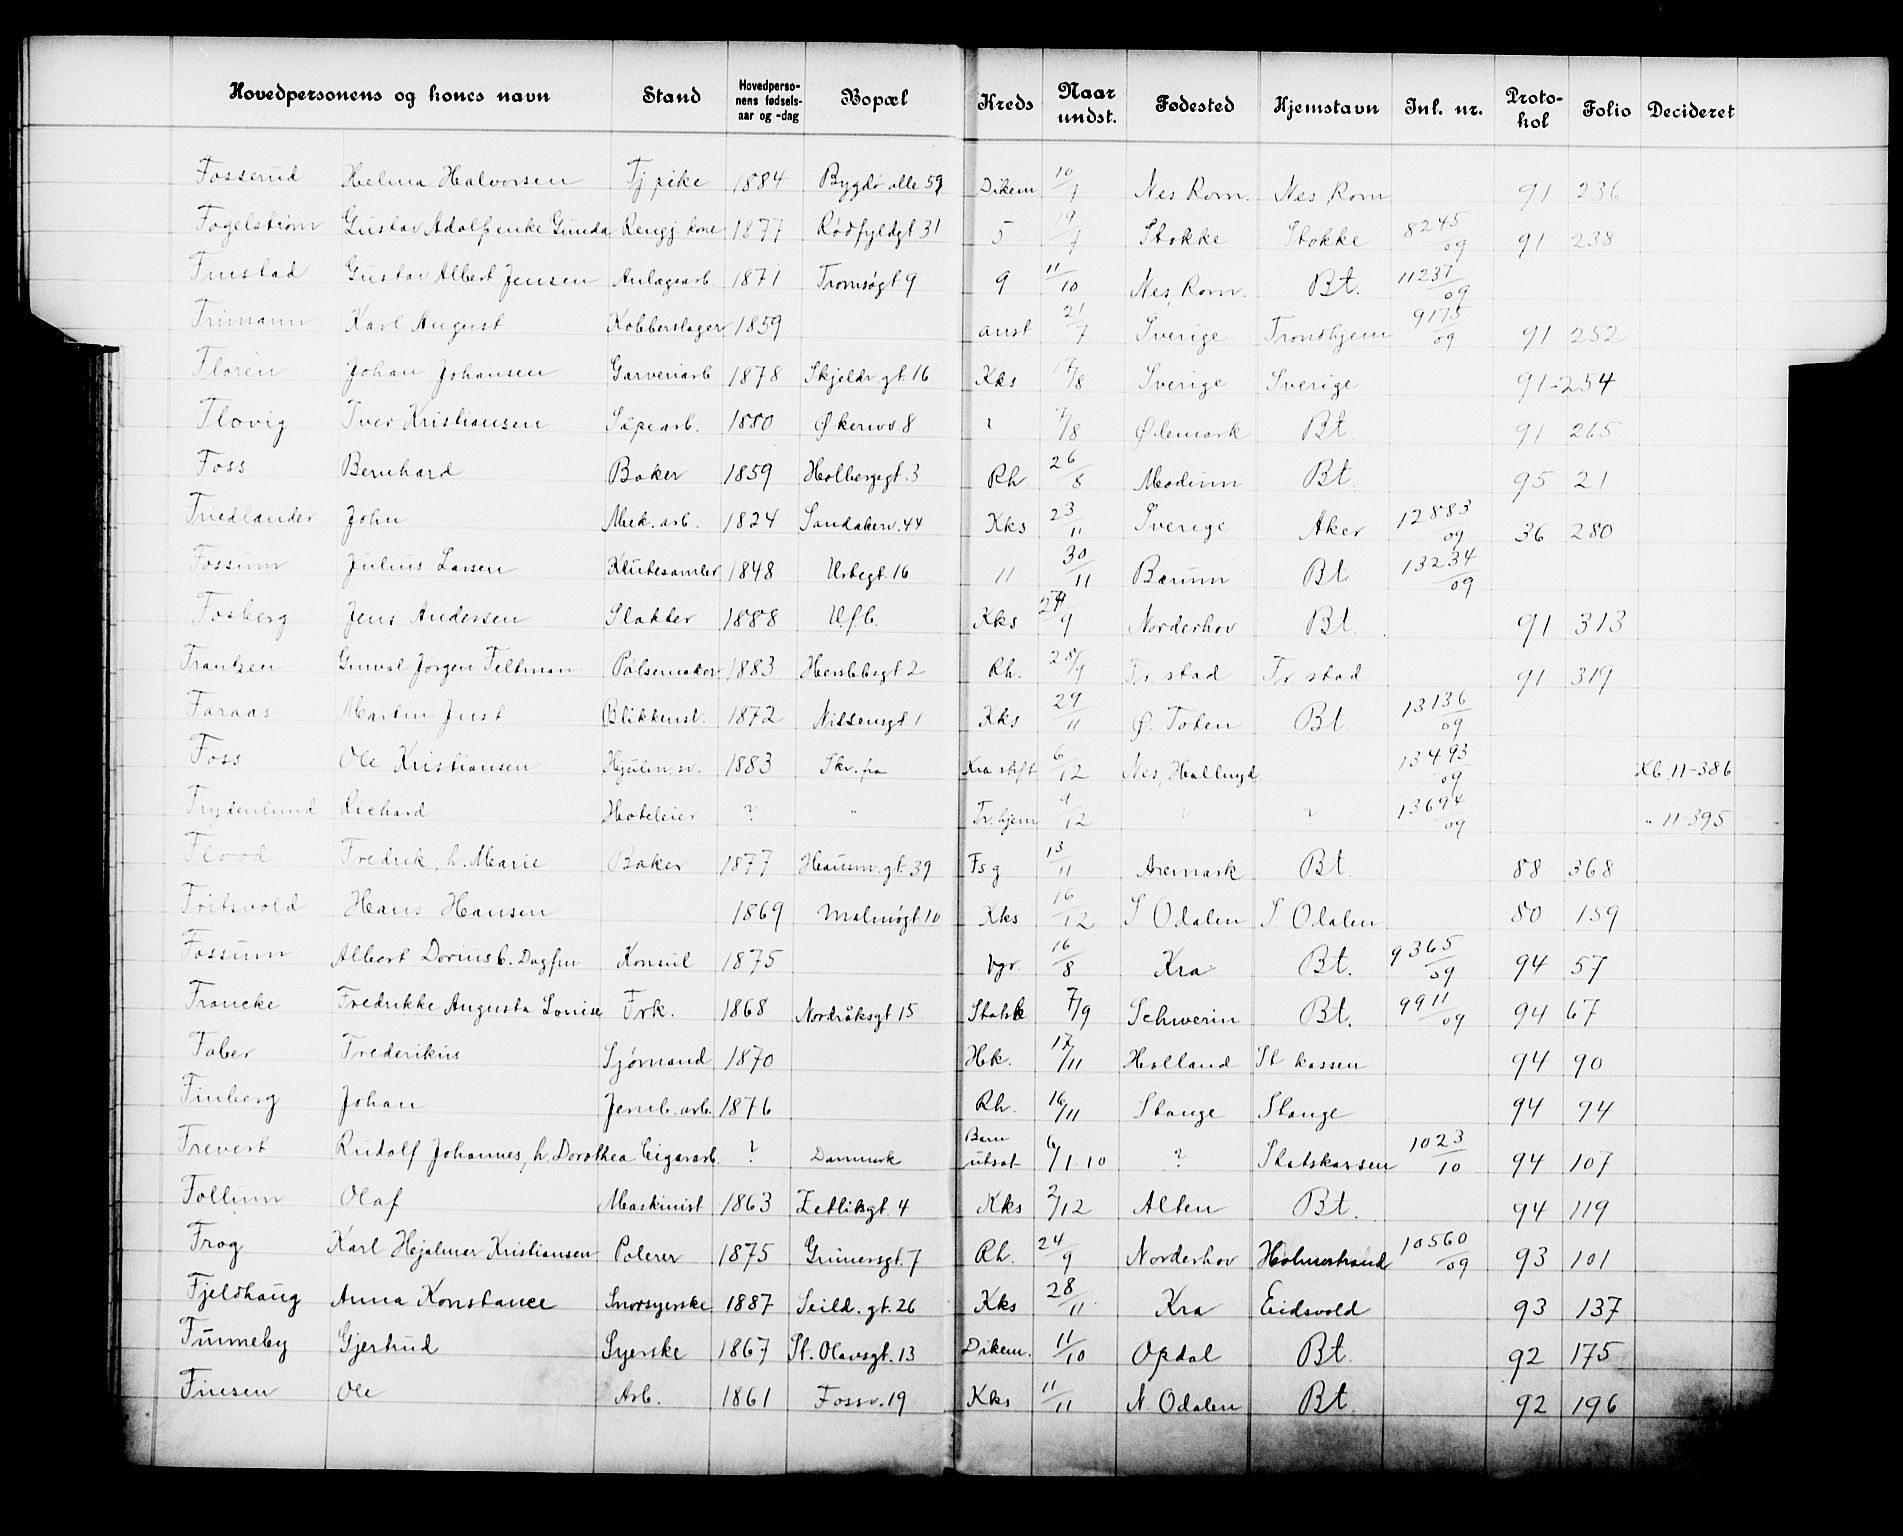 Hovedpersonens og kones navn Stand Hovedperso-nens fødsels-aar og -dag Bopæl Kreds Naar undst. Fødested Hjemstavn Inl. nr. Proto-kol Folio Decideret
Fosserud Helma Halvorsen Tj pike 1884 Bygdø alle 59 Dikem 10/1 Nes Rom. Nes Rom 91 236
Fagelstrøm Gustav Adolf enke Gunda Rengj. kone 1877 Rødfyldgt 31 5 19/7 Stokke Stokke 8245/09 91 238
Finstad Gustav Albert Jensen Anlægsarb. 1871 Tromsøgt 9 9 11/10 Nes, Rom. Bt. 11237/09
Frimann Karl August Kobberslager 1859 anst 21/7 Sverige Trondhjem 9175/09 91 252
Floren Johan Johansen Garveriarb. 1878 Skjeldr. gt. 16 Kks 17/8 Sverige Sverige 91-254
Flovig Iver Kristiansen Såpearb. 1880 Økernvv 8 ? 7/8 Ødemark Bt 91 265
Foss Bernhard Baker 1859 Holbergsgt. 3 Rh 26/8 Modum Bt. 95 21
Friedlander John Mek. arb. 1824 Sandakerv. 44 Kks 23/11 Sverige Aker 12883/09 36 280
Fossum Julius Larsen Klutesamler 1848 Urtegt. 16 11 30/11 Bærum Bt. 13234/09
Fosberg Jens Andersen Slakter 1888 Ufb. Kks 24/9 Norderhov Bt. 91 313
Frantzen Gunval Jørgen Feltman Pølsemaker 1883 Herslebsgt 2 Rh. Fr. stad Fr. stad 91 319
Faraas Martin Just Blikkensl. 1872 Nilsensgt 1 Kks 29/11 Ø. Toten Bt. 13136/09
Foss Ole Kristiansen 1883 Skr. fra Kra stift 6/12 Nes, Hallingd 13493/09 Kb. 11-386
Frydenlund Richard Hoteleier ? " Tr. hjem 9/12 ? ? 13694/09 " 11-395
Flood Fredrik, h. Marie Baker 1877 Hausm. gt. 39 Fsg 13/11 Aremark Bt. 88 368
Fritsvold Hans Hansen 1869 Malmøgt. 10 Kks 16/12 S Odalen S. Odalen 80 159
Fossum Albert Dorius b. Dagfin Konsul 1875 Vgr 16/8 Kra Bt. 9365/09 94 57
Francke Fredrikke Augusta Louise Frk. 1868 Nordråksgt 15 Statsk 7/9 Schwerin Bt. 9911/09 94 67
Faber Frederikus Sjømand 1870 Hek. 17/11 Holland St. kassen 94 90
Finberg Johan Jernb. arb. 1876 Rh. 16/11 Stange Stange 94 94
Frevert Rudolf Johannes, h. Dorothea Cigararb. ? Danmark Barn utsat 6/1 10 ? Statskassen 1023/10 94 107
Follum Olaf Maskinist 1863 Zetlitzgt. 4 Kks 2/12 Alten Bt. 94 119
Frog Karl Hjalmar Kristiansen Polerer 1875 Grünersgt. 7 Rh. 24/9 Norderhov Holmestrand 10560/09 93 101
Fjeldhaug Anna Konstance Snorsyerske 1887 Seild. gt. 26 Kks 28/11. Kra Eidsvold 93 137
Finneby Gjertrud Syerske 1867 St. Olavsgt. 13 Dikem. 11/10 Opdal Bt. 92 175
Finsen Ole Arb. 1861 Fossv. 19 Kks 11/11 N. Odalen Bt. 92 196